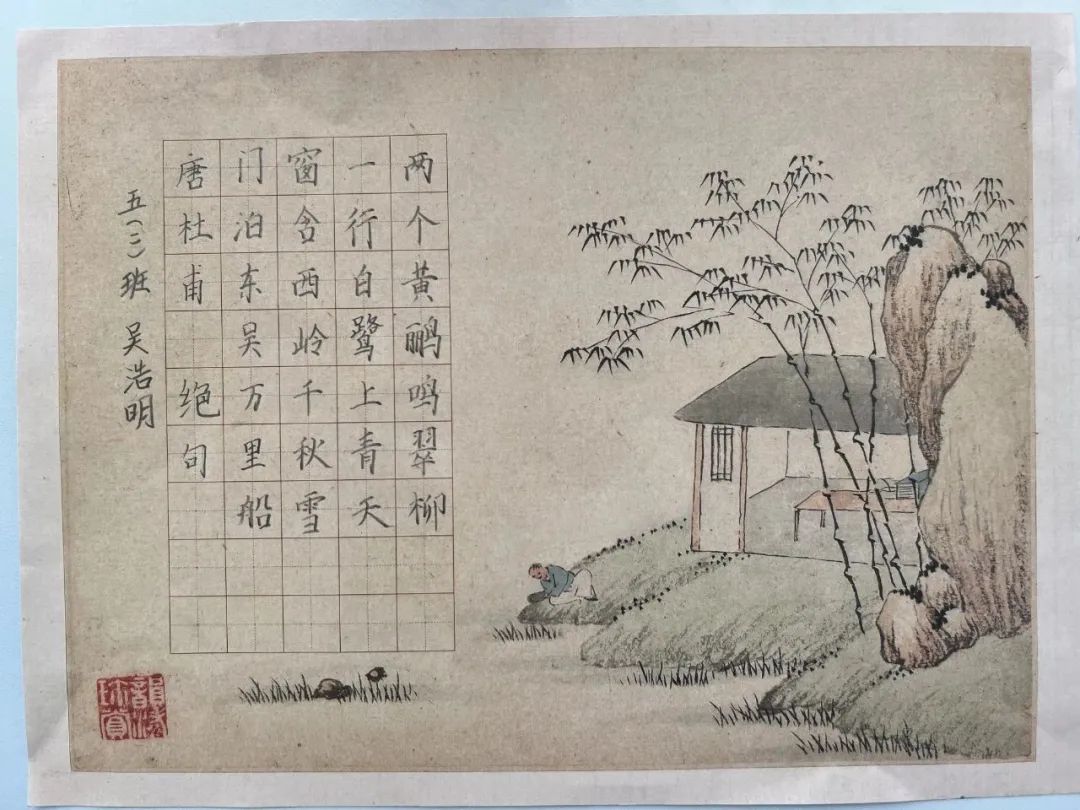 两个黄鹂鸣翠柳
一行白鹭上青天
窗含西岭千秋雪
门泊东吴万里船
唐杜甫 绝句
五(二)班 吴浩明